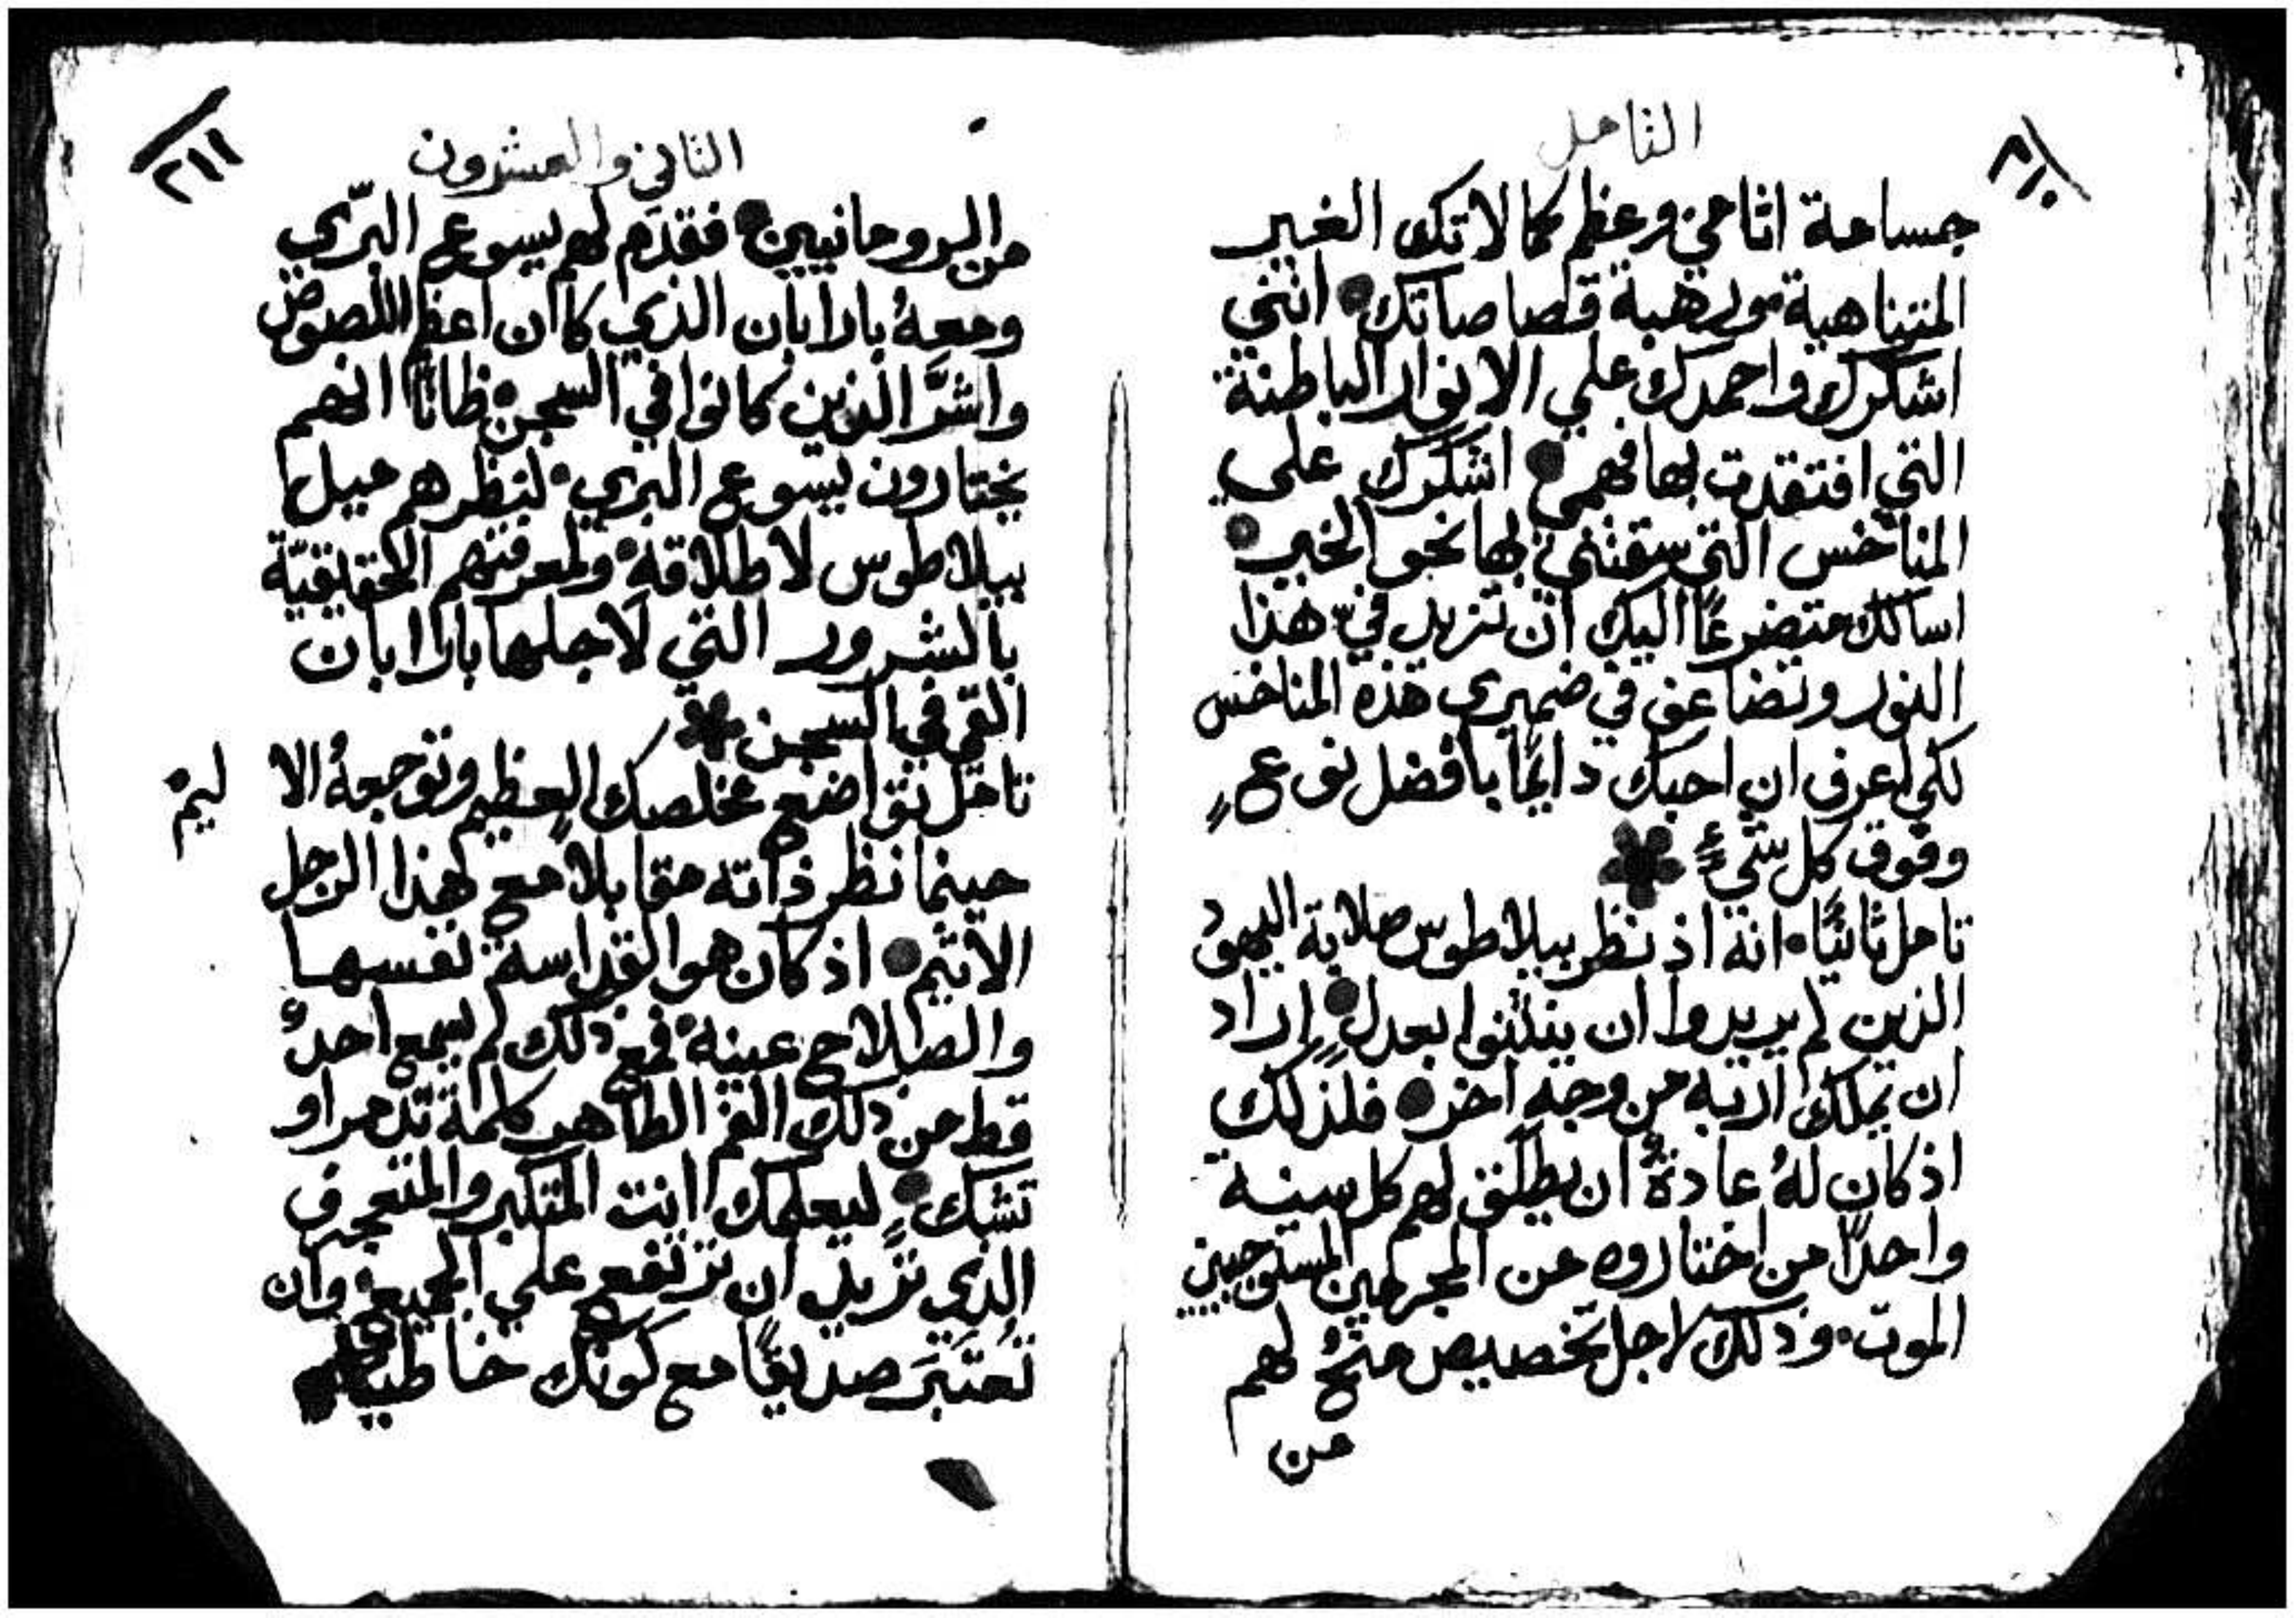 التامل
٢١٠
جساحة اثامي وعظم كمالاتك الغير
المتناهية ورهبة قصاصاتك انني
اشكرك واحمدك علي الانوار الباطنة
التي افتقدت بها فهمي اشكرك علي
المناخس التي سقتني بها نحو الخير
اسالك متضرعًا اليك ان تزيد فيّ هذا
النور وتضاعف في ضميري هذه المناخس
لكي اعرف ان احبك دايمًا بافضل نوعٍ
وفوق كل شيءٍ
تامل ثانيًا انه اذ نظر بيلاطوس صلابة اليهود
الذين لم يريدوا ان ينثنوا بعدلٍ اراد
ان يملك اربه من وجه اخر فلذلك
اذ كان لهُ عادةٌ ان يطلق لهم كل سنة
واحدًا من اختاروه من المجرمين المستوجبين
الموت وذلك لاجل تخصيص منحٍ لهم
من
الثاني والعشرون
٢١١
من الروحانيين فقدم لهم يسوع البرّي
ومعهُ بارابان الذي كان اعظم اللصوص
واشرَّ الذين كانوا في السجن ظانًا انهم
يختارون يسوع البري لنظرهم ميل
بيلاطوس لاطلاقه ولمعرفتهم الحقيقيّة
بالشرور التي لاجلها بارابان
القي في السجن
تامل تواضع مخلصك العظيم وتوجعهُ الاليم
حينما نظر ذاته مقابلاً مع هذا الرجل
الاثيم اذ كان هو القداسة نفسها
والصلاح عينه فمع ذلك لم يسمع احدٌ
قط من ذلك الفم الطاهر كلمة تذمر او
تشكٍ ليعلمك انت المتكبر والمتعجرف
الذي تريد ان ترتفع علي الجميع وان
تُعتَبَر صديقًا مع كونك خاطيًا